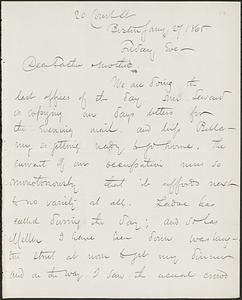 20 Court St
Boston Jany 27/1865
Friday Eve—
Dear Father & Mother
We are doing the
last offices of the day
in copying our days letters for
the evening mail and
getting ready to go home. The
current of our occupation runs so
monotonously that it affords next
to no variety at all.
called during the day; and so has
Miller I have been down
the street at noon to get my dinner
and on the way I saw the usual crowd